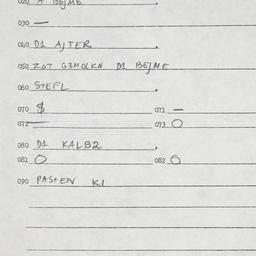 020 A BEJMB
030 —
040 D1 AJTER .
050 ZOT G3MOLKN D1 BEJME
060 STEFL .
070 $ 071 —
072 — 073 O
080 D1 KALB2 .
081 O 082 O
090 PASTEN KI